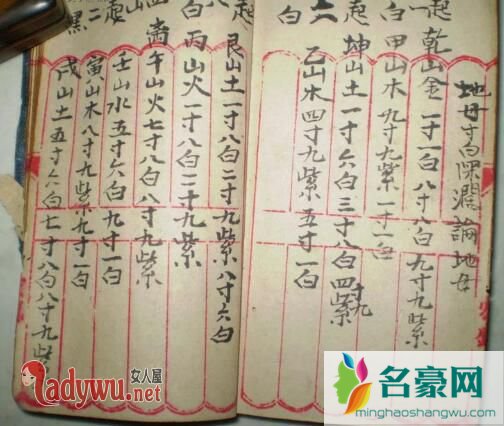 地母寸白深濶論地母
乾山金一寸一白八寸八白九寸九紫
甲山木九寸九紫一寸一白
坤山土一寸六白三寸八白四寸九紫
乙山木四寸九紫五寸一白
艮山土一寸八白二寸九紫八寸六白
丙山火一寸八白二寸九紫
午山火七寸八白八寸九紫
壬山水五寸六白九寸一白
寅山木八寸九紫九寸一白
戌山土五寸六白七寸八白八寸九紫
女人屋
Ladywu.net
名豪网
minghaoshangwu.com